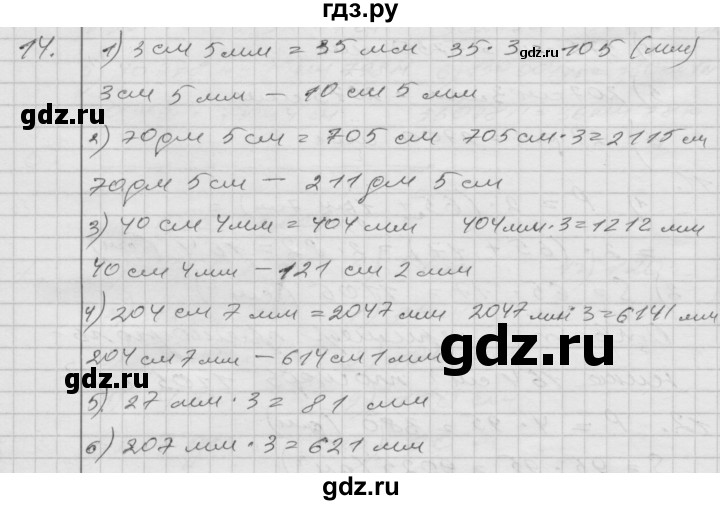 гдз.ру
14. 1) 3 см 5 мм = 35 мм 35 · 3 = 105 (мм)
3 см 5 мм — 10 см 5 мм
2) 70 дм 5 см = 705 см 705 см · 3 = 2115 см
70 дм 5 см — 211 дм 5 см
3) 40 см 4 мм = 404 мм 404 мм · 3 = 1212 мм
40 см 4 мм — 121 см 2 мм
4) 204 см 7 мм = 2047 мм 2047 мм · 3 = 6141 мм
204 см 7 мм — 614 см 1 мм
5) 27 мм · 3 = 81 мм
6) 207 мм · 3 = 621 мм
gdz.ru
gdz.ru
gdz.ru
gdz.ru
gdz.ru
gdz.ru
gdz.ru
gdz.ru